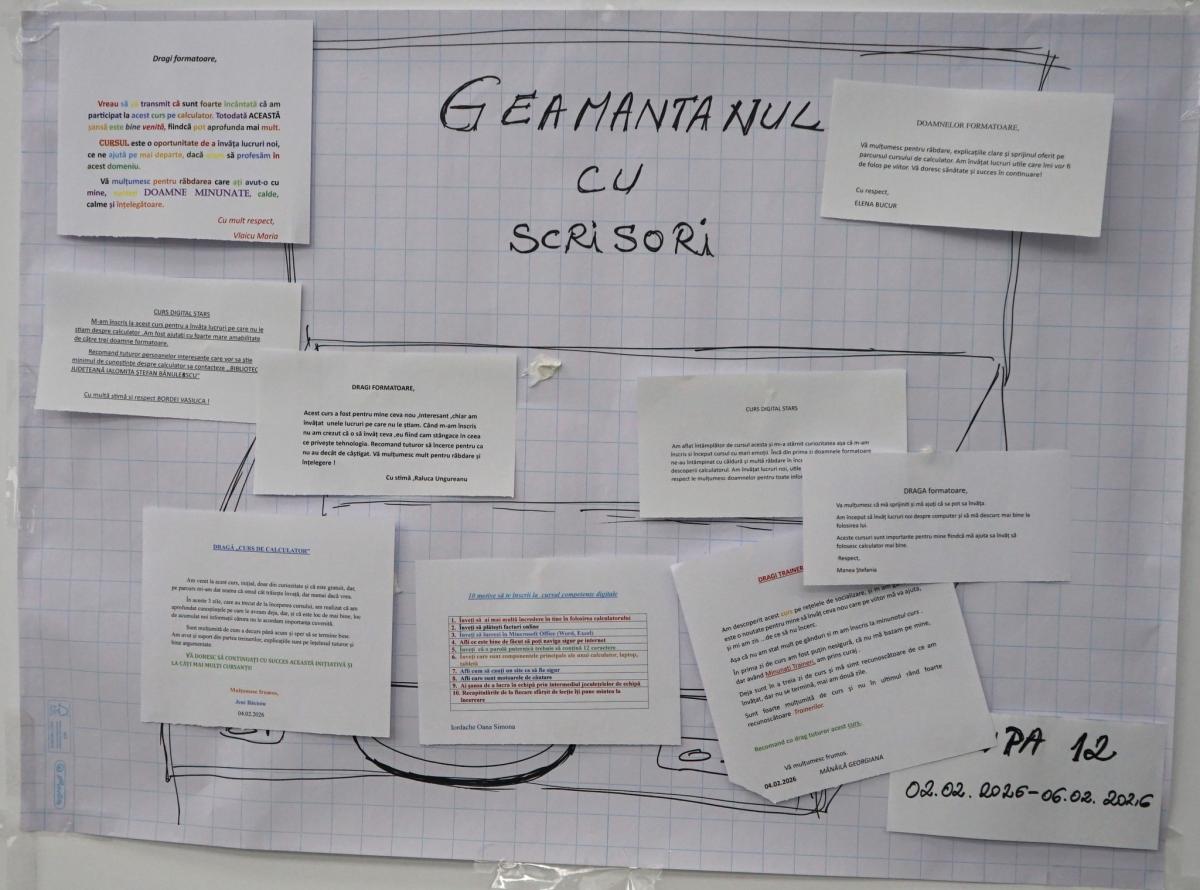 GEAMANTANUL
CU
SCRISORI
Dragi formatoare,
Vreau să vă transmit că sunt foarte încântată că am
participat la acest curs pe calculator. Totodată ACEASTĂ
șansă este bine venită, fiindcă pot aprofunda mai mult.
CURSUL este o oportunitate de a învăța lucruri noi,
ce ne ajută pe mai departe, dacă să profesăm în
acest domeniu.
Vă mulțumesc pentru răbdarea care ați avut-o cu
mine, DOAMNE MINUNATE, calde,
calme și înțelegătoare.
Cu mult respect,
Vlaicu Maria
DOAMNELOR FORMATOARE,
Vă mulțumesc pentru răbdare, explicațiile clare și sprijinul oferit pe
parcursul cursului de calculator. Am învățat lucruri utile care îmi vor fi
de folos pe viitor. Vă doresc sănătate și succes în continuare!
Cu respect,
ELENA BUCUR
CURS DIGITAL STARS
M-am înscris la acest curs pentru a învăța lucruri pe care nu le
știam despre calculator .Am fost ajutați cu foarte mare amabilitate
de către trei doamne formatoare.
Recomand tuturor persoanelor interesante care vor sa știe
minimul de cunoștințe despre calculator sa contacteze „BIBLIOTEC
JUDEȚEANĂ IALOMIȚA ȘTEFAN BĂNULESCU"
Cu multă stimă și respect BORDEI VASILICA !
DRAGI FORMATOARE,
Acest curs a fost pentru mine ceva nou ,interesant ,chiar am
învățat unele lucruri pe care nu le știam. Când m-am înscris
nu am crezut că o să învăț ceva ,eu fiind cam stângace în ceea
ce privește tehnologia. Recomand tuturor să încerce pentru ca
nu au decât de câștigat. Vă mulțumesc mult pentru răbdare și
înțelegere !
Cu stimă ,Raluca Ungureanu
CURS DIGITAL STARS
Am aflat întâmplător de cursul acesta și mi-a stârnit curiozitatea așa că m-am
înscris si început cursul cu mari emoții. Încă din prima zi doamnele formatoare
ne-au întâmpinat cu căldură și multă răbdare în înc
descoperii calculatorul. Am învățat lucruri noi, utile
respect le mulțumesc doamnelor pentru toate infor
DRAGA formatoare,
Va mulțumesc să mă sprijiniți și mă ajuți că sa pot sa învăța.
Am început să învăț lucruri noi despre computer și să mă descurc mai bine la
folosirea lui.
Aceste cursuri sunt importante pentru mine fiindcă mă ajuta sa învăț să
folosesc calculator mai bine.
Respect,
Manea Ștefania
DRAGĂ „CURS DE CALCULATOR"
Am venit la acest curs, inițial, doar din curiozitate și că este gratuit, dar,
pe parcurs mi-am dat seama că omul cât trăiește învață, dar numai dacă vrea.
În aceste 3 zile, care au trecut de la începerea cursului, am realizat că am
aprofundat cunoștințele pe care le aveam deja, dar, și că este loc de mai bine, loc
de acumulat noi informații cărora nu le acordam importanța cuvenită.
Sunt mulțumită de cum a decurs până acum și sper să se termine bine.
Am avut și suport din partea trainerilor, explicațiile sunt pe înțelesul tuturor și
bine argumentate.
VĂ DORESC SĂ CONTINUAȚI CU SUCCES ACEASTĂ INIȚIATIVĂ ȘI
LA CÂȚI MAI MULȚI CURSANȚI!
Mulțumesc frumos,
Jeni Băcioiu
04.02.2026
10 motive să te înscrii la cursul competente digitale
1. Înveți să ai mai multă încredere în tine în folosirea calculatorului
2. Înveți să plătești facturi online
3. Înveți să lucrezi în Mincrosoft Office (Word, Excel)
4. Afli ce este bine de făcut să poți naviga sigur pe internet
5. Înveți că o parolă puternică trebuie să conțină 12 caractere
6. Înveți care sunt componentele principale ale unui calculator, laptop,
tabletă
7. Afli cum să cauți un site ca să fie sigur
8. Afli care sunt motoarele de căutare
9. Ai șansa de a lucra în echipă prin intermediul joculețelor de echipă
10. Recapitulările de la fiecare sfârșit de lecție îți pune mintea la
încercare
Iordache Oana Simona
DRAGI TRAINER
Am descoperit acest curs pe rețelele de socializare, și m-am
este o noutate pentru mine să învăț ceva nou care pe viitor mă va ajuta,
și mi am zis ...de ce să nu încerc.
Așa că nu am stat mult pe gânduri si m am înscris la minunatul curs .
În prima zi de curs am fost puțin nesigură, că nu mă bazam pe mine,
dar având Minunați Traineri, am prins curaj .
Deja sunt în a treia zi de curs și mă simt recunoscătoare de ce am
învățat, dar nu se termină, mai am două zile.
Sunt foarte mulțumită de curs și nu în ultimul rând foarte
recunoscătoare Trainerilor.
Recomand cu drag tuturor acest curs.
Vă mulțumesc frumos.
04.02.2026 MĂNĂILĂ GEORGIANA
PA 12
02.02.2026-06.02.2026